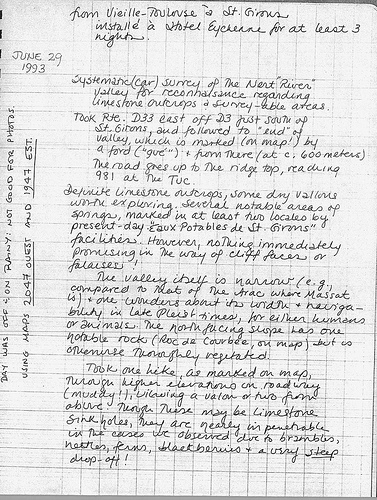 from Vieille-Toulouse à St. Girons
installe à Hotel Eychenne for at least 3
nights.
JUNE 29
1993
Systematic (car) survey of the Nert "River"
Valley for reconnaissance regarding
limestone outcrops & survey-able areas.
Took Rte. D33 east off D3 just south of
St. Girons, and followed to "end" of
valley, which is marked (on map!) by
a ford ("gué") & from there (at c. 600 meters)
The road goes up to the ridge top, reaching
981 at the Tuc.
Definite limestone outcrops, some dry vallons
worth exploring. Several notable areas of
springs, marked in at least two locales by
present-day "Eaux Potables de St. Girons"
facilities. However, nothing immediately
promising in the way of cliff faces or
falaises.
The valley itself is narrow (e.g.,
compared to that of the Arac where Massat
is) & one wonders about its width & naviga-
bility in late Pleist. times, for either humans
or animals. The north facing slope has one
notable rock (Roc de Courbe, on map) but is
otherwise thoroughly vegetated.
Took one hike, as marked on map,
through higher elevations on roadway
(muddy!), viewing a valon or two from
above. Though these may be limestone
sink holes, they are nearly impenetrable
in the cases we observed due to brambles,
nettles, ferns, blackberries & a very steep
drop-off!
DAY WAS OFF & ON RAINY: NOT GOOD FOR PHOTOS.
USING MAPS 2047 OUEST AND 1947 EST.